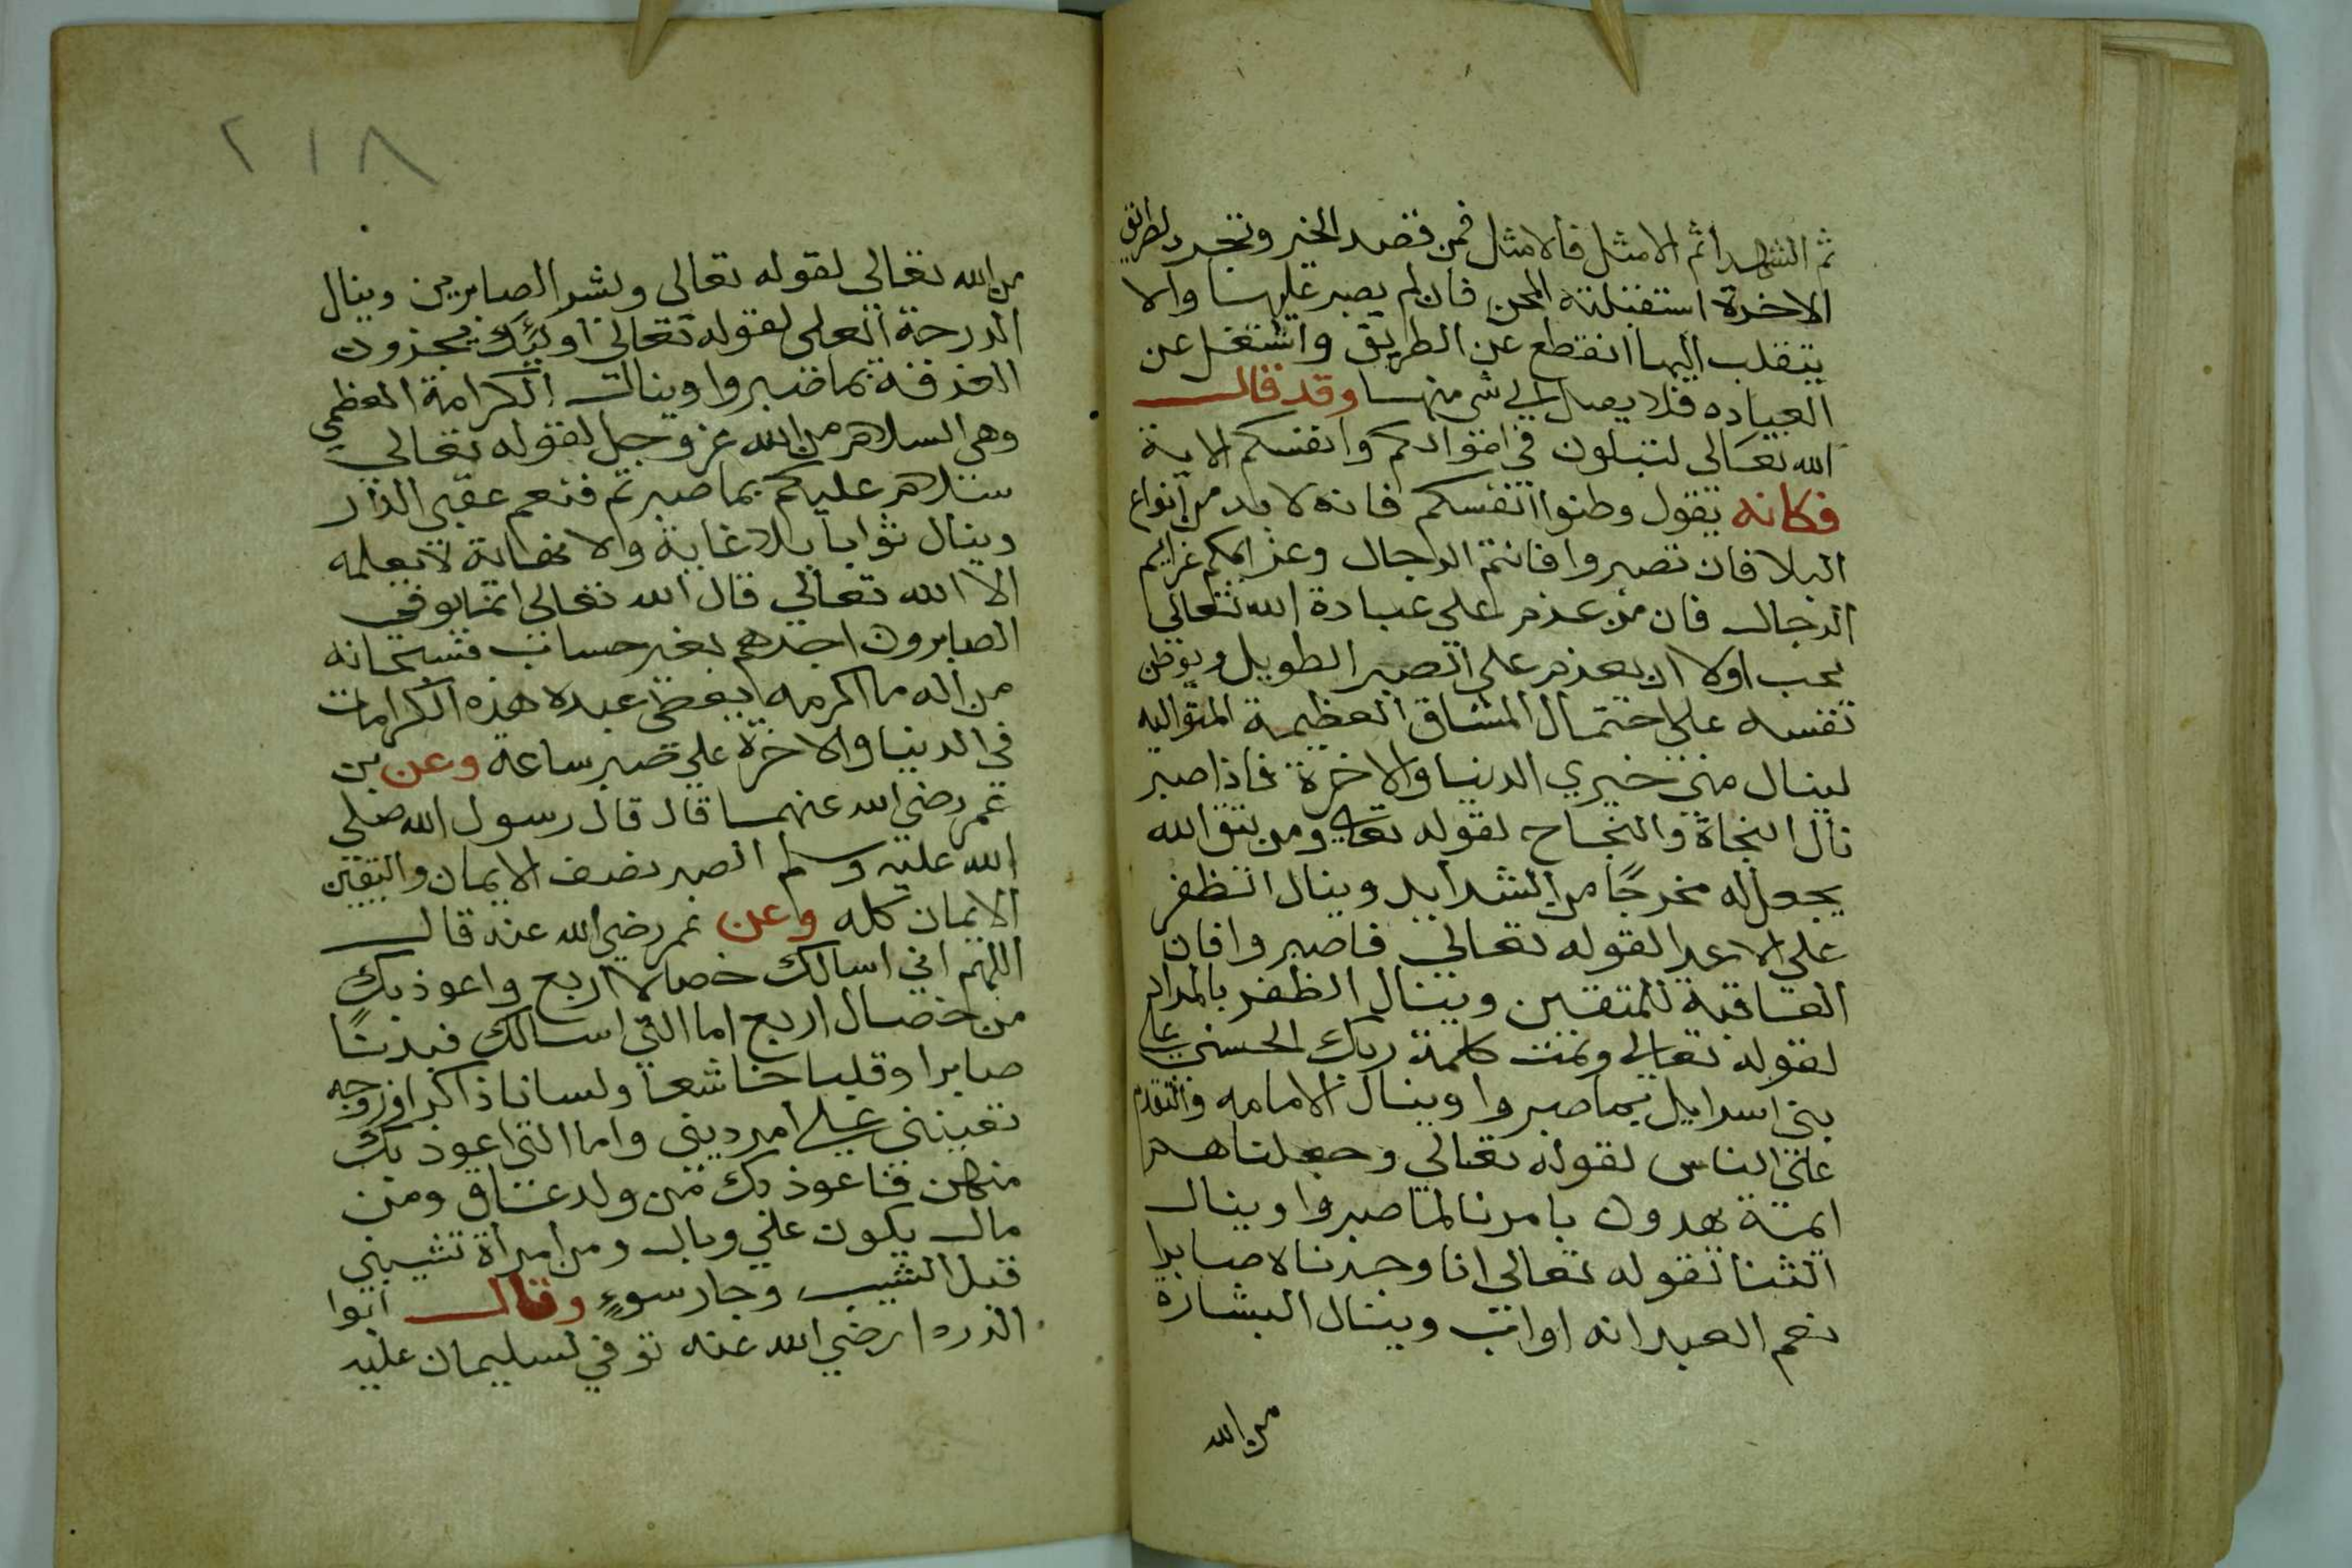 ثم الشهدا ثم الامثل فالامثل فمن قصد الخير وتجرد لطرائق
الاخرة استقبلته المحن فان لم يصبر عليها والا
يتقلب اليها انقطع عن الطريق واشتغل عن
العباده فلا يصل الي شي منها وقد قال
الله تعالي لتبلون في اموالكم وانفسكم الاية
فكانه يقول وطنوا انفسكم فانه لا بد من انواع
البلا فان تصبروا فانتم الرجال وعزايمكم عزايم
الرجال فان من عزم علي عبادة الله تعالي
يجب اولا ان يعزم علي الصبر الطويل ويوطن
نفسه علي احتمال المشاق العظيمة المتواليه
لينال مني خيري الدنيا والاخرة فاذا صبر
نال النجاة والنجاح لقوله تعالي ومن يتق الله
يجعل له مخرجًا من الشدايد وينال الظفر
علي الاعدا لقوله تعالي فاصبروا فان
العاقبة للمتقين وينال الظفر بالمراد
لقوله تعالي وتمت كلمة ربك الحسني علي
بني اسرايل بما صبروا وينال الامامه والتقدم
علي الناس لقوله تعالي وجعلناهم
ايمة يهدون بامرنا لما صبروا وينال
الثنا لقوله تعالي انا وجدناه صابرا
نعم العبد انه اواب وينال البشارة
من الله
٢١٨
من الله تعالي لقوله تعالي وبشر الصابرين وينال
الدرجة العلي لقوله تعالي اولئك يجزون
الغرفة بما صبروا وينال الكرامة العظمي
وهي السلام من الله عز وجل لقوله تعالي
سلام عليكم بما صبرتم فنعم عقبي الدار
وينال ثوابا بلا غاية ولا نهاية لا يعلمه
الا الله تعالي قال الله تعالي انما يوفي
الصابرون اجرهم بغير حساب فسبحانه
من اله ما اكرمه يعطي عبده هذه الكرامات
في الدنيا والاخرة علي صبر ساعه وعن بن
عمر رضي الله عنهما قال قال رسول الله صلي
الله عليه وسلم الصبر نصف الايمان واليقين
الايمان كله وعن عمر رضي الله عنه قال
اللهم اني اسالك خصالا اربع واعوذ بك
من خصال اربع اما التي اسالك فبدنًا
صابرا وقلبا خاشعا ولسانا ذاكرا وزوجه
تعينني علي امر ديني واما التي اعوذ بك
منهن فاعوذ بك من ولد عاق ومن
مال يكون علي وبال ومن امراة تشيبني
قبل الشيب وجار سوءٍ وقال ابوا
الدردا رضي الله عنه توفي لسليمان عليه